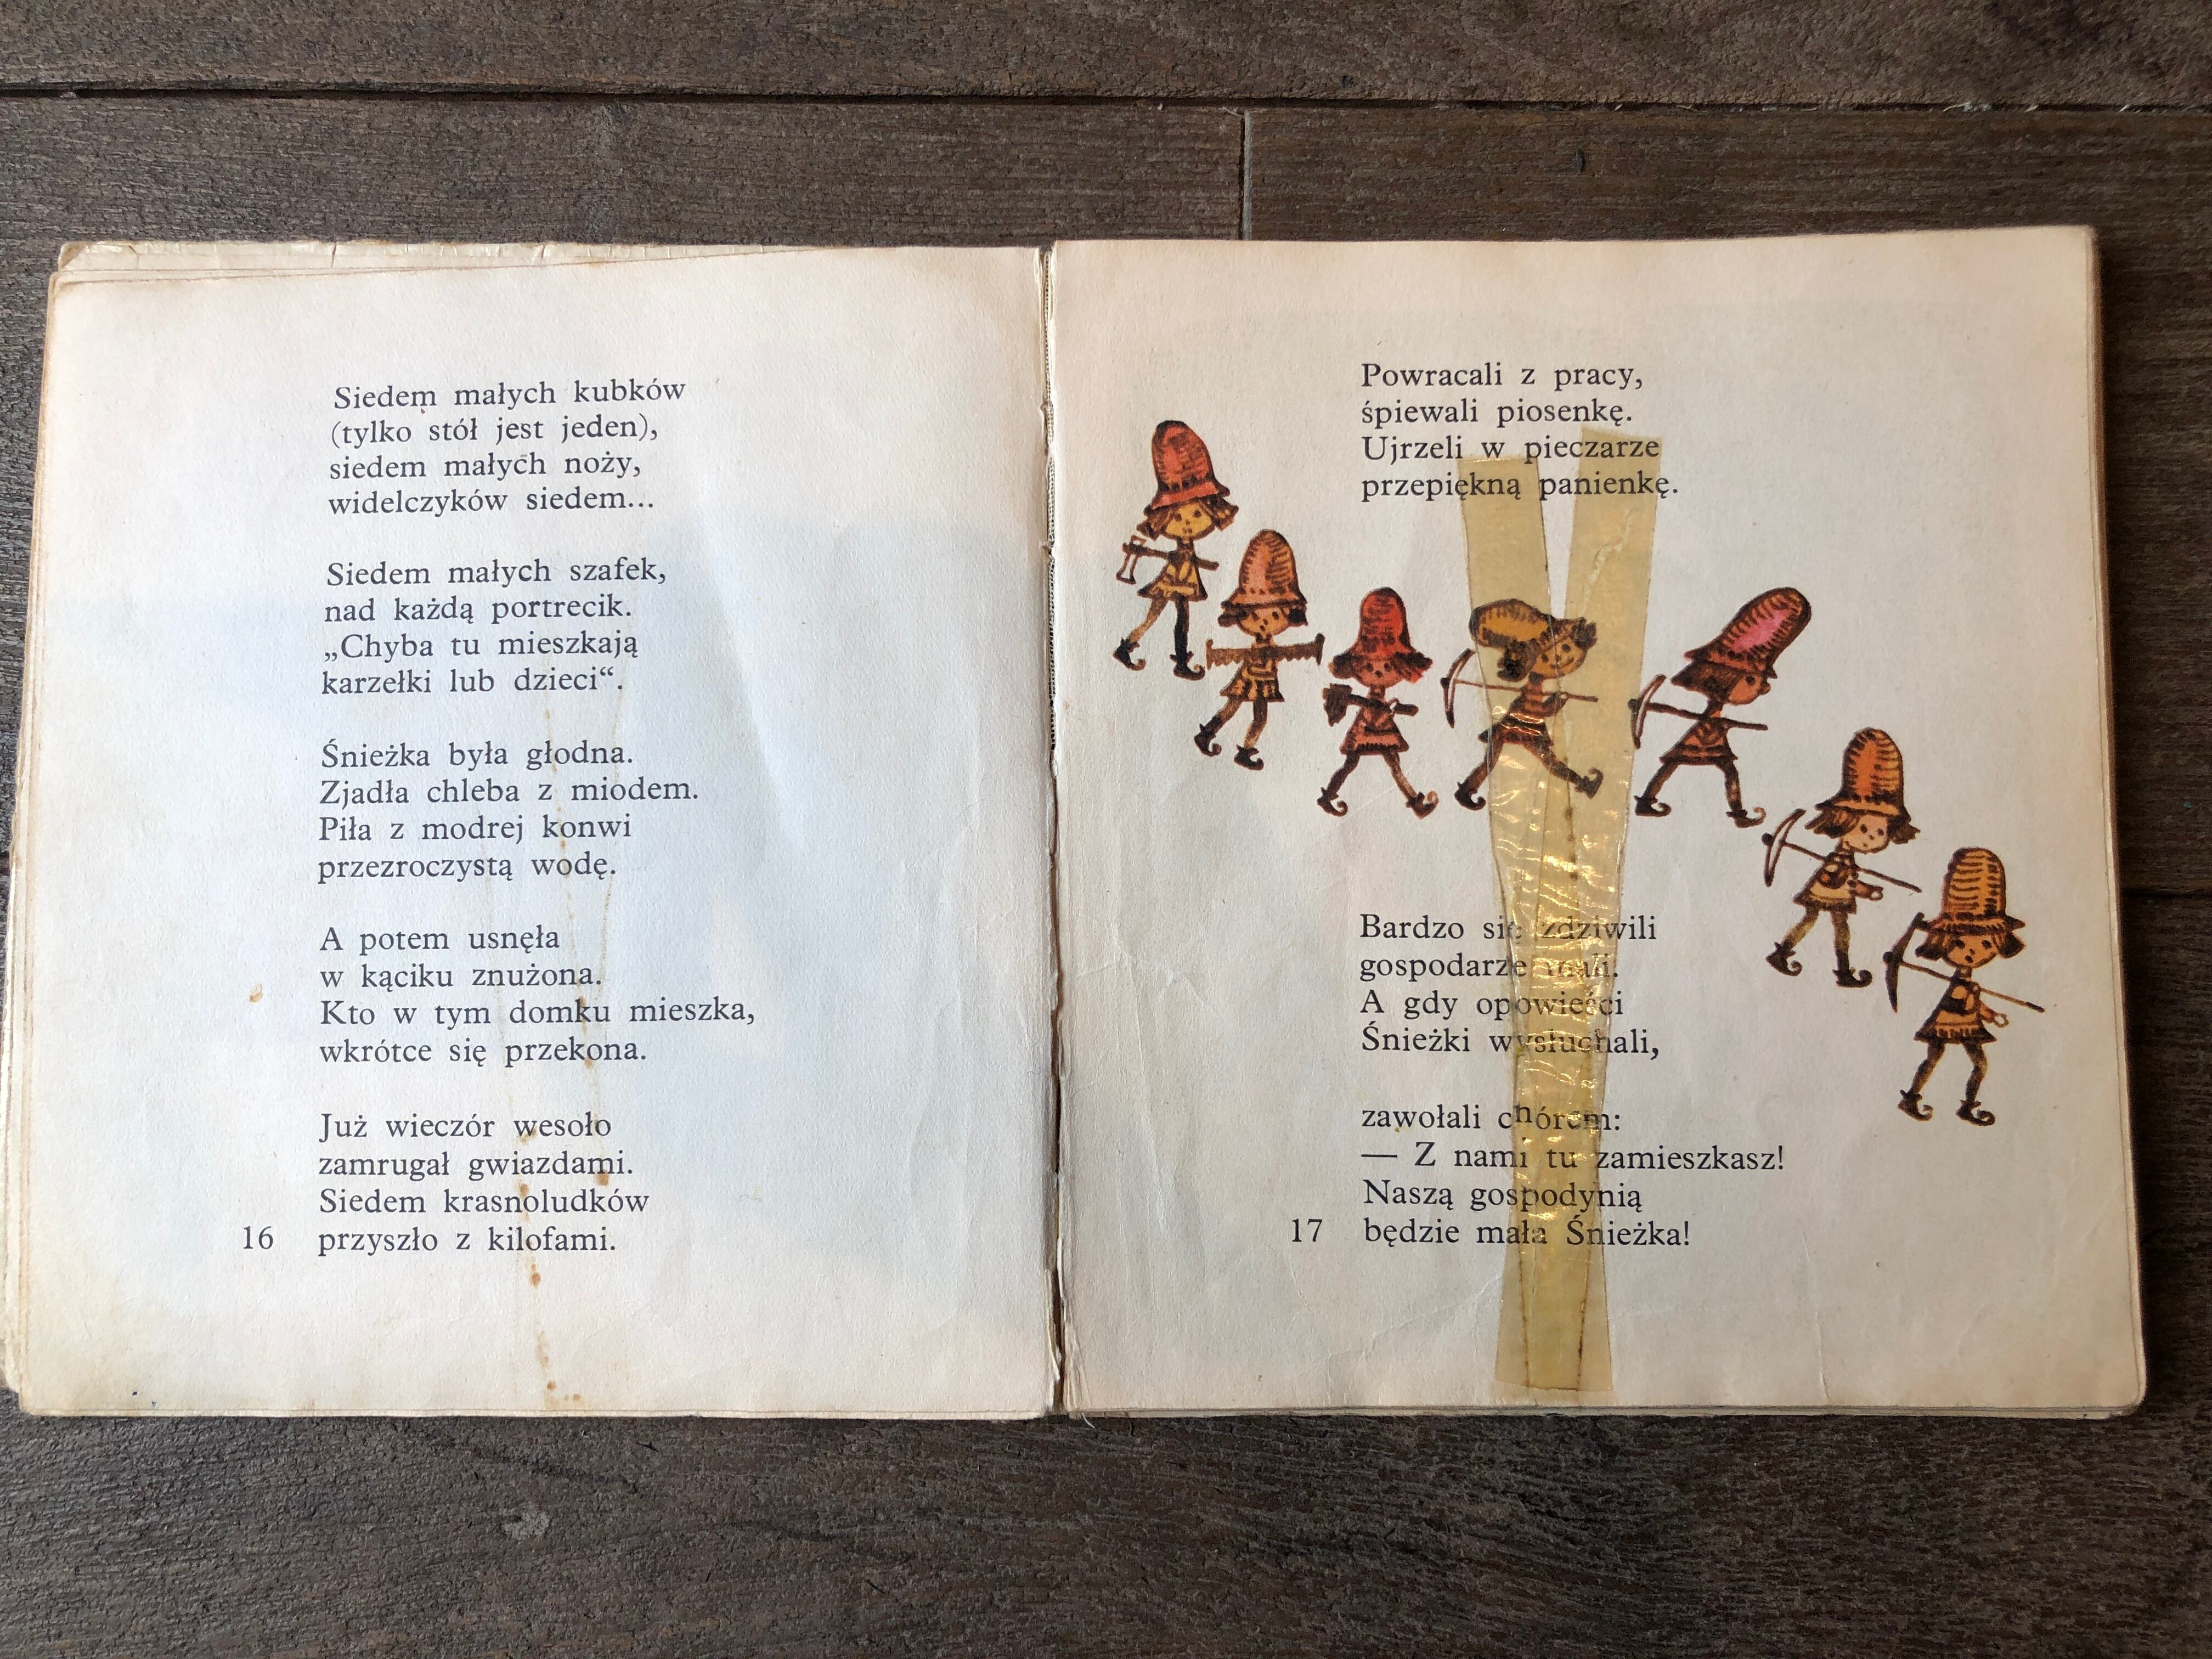 Siedem małych kubków
(tylko stół jest jeden),
siedem małych noży,
widelczyków siedem...
Siedem małych szafek,
nad każdą portrecik.
„Chyba tu mieszkają
karzełki lub dzieci“.
Śnieżka była głodna.
Zjadła chleba z miodem.
Piła z modrej konwi
przezroczystą wodę.
A potem usnęła
w kąciku znużona.
Kto w tym domku mieszka,
wkrótce się przekona.
Już wieczór wesoło
zamrugał gwiazdami.
Siedem krasnoludków
16 przyszło z kilofami.
Powracali z pracy,
śpiewali piosenkę.
Ujrzeli w pieczarze
przepiękną panienkę.
Bardzo się zdziwili
gospodarze mali.
A gdy opowieści
Śnieżki wysłuchali,
zawołali chórem:
— Z nami tu zamieszkasz!
Naszą gospodynią
17 będzie mała Śnieżka!